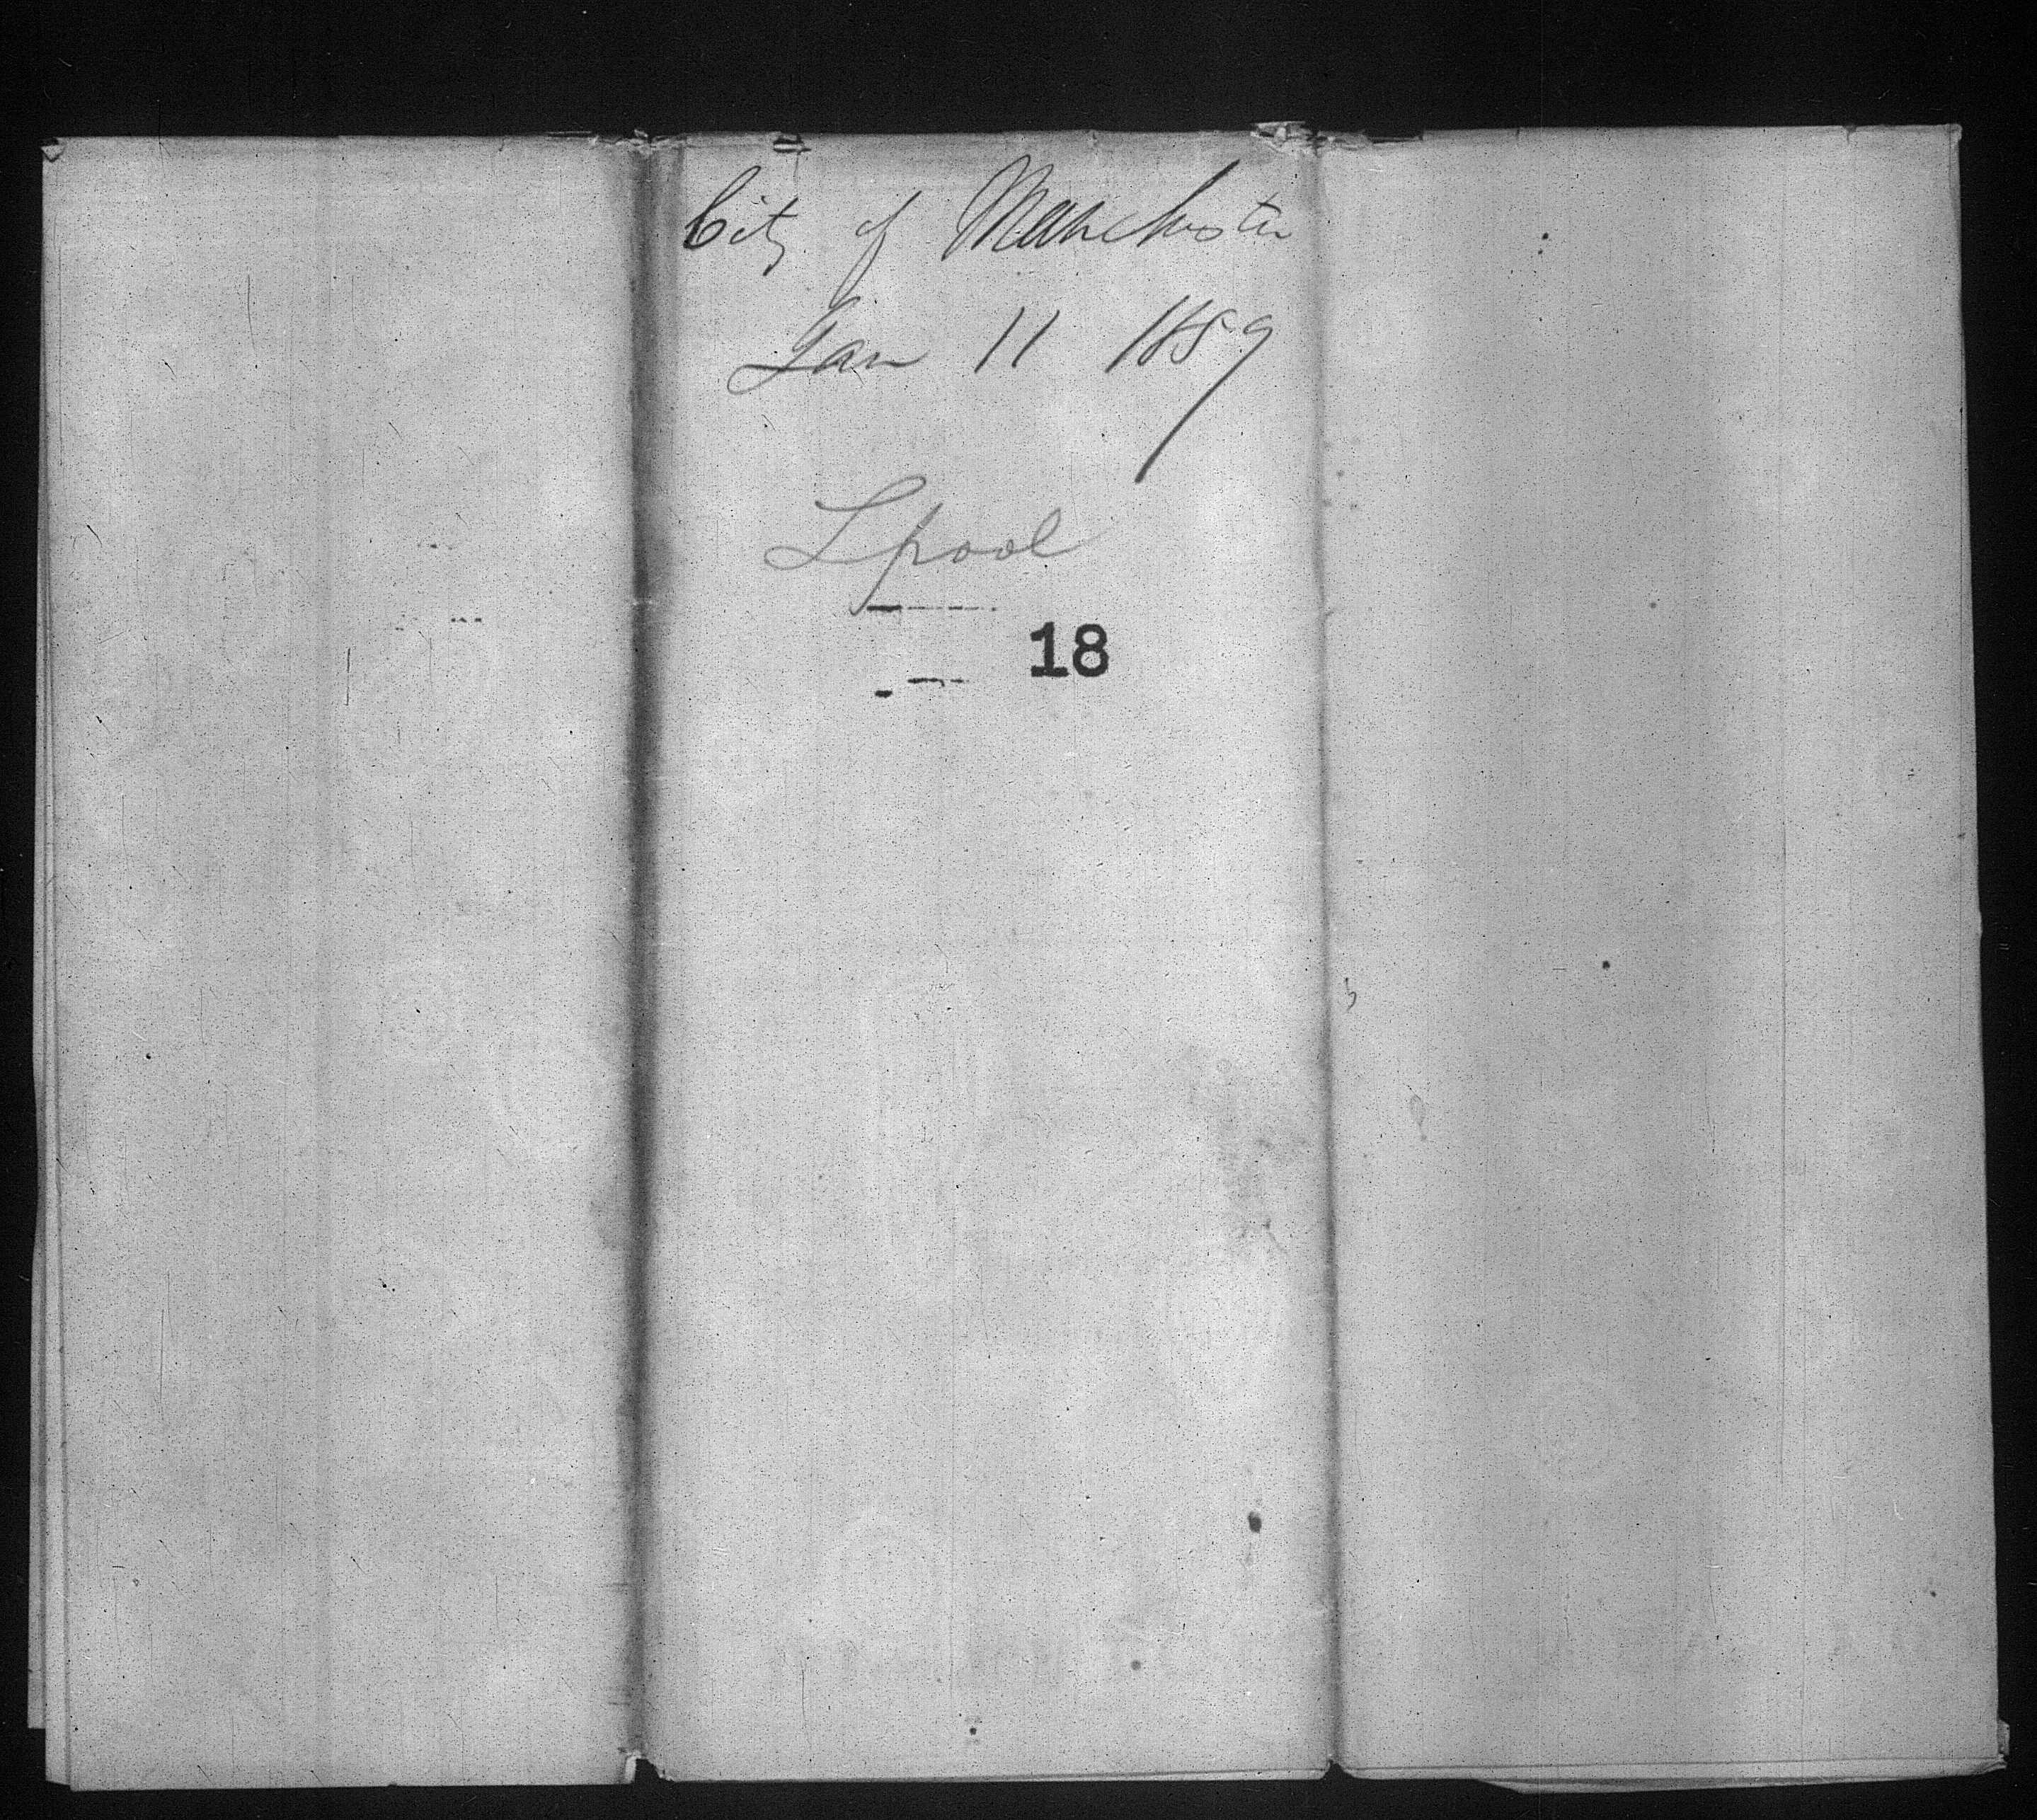 City of Manchester
Jan 11 1859
Lpool
18